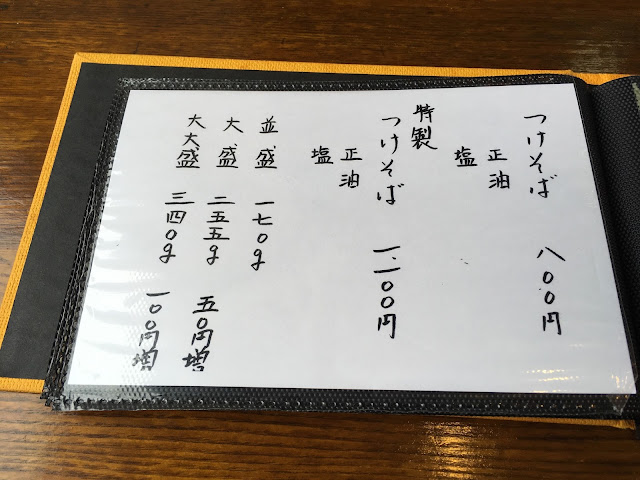 つけそば 八〇〇円
正油
塩
特製
つけそば 一、一〇〇円
正油
塩
並盛 一七〇g
大盛 二五五g 五〇円増
大大盛 三四〇g 一〇〇円増